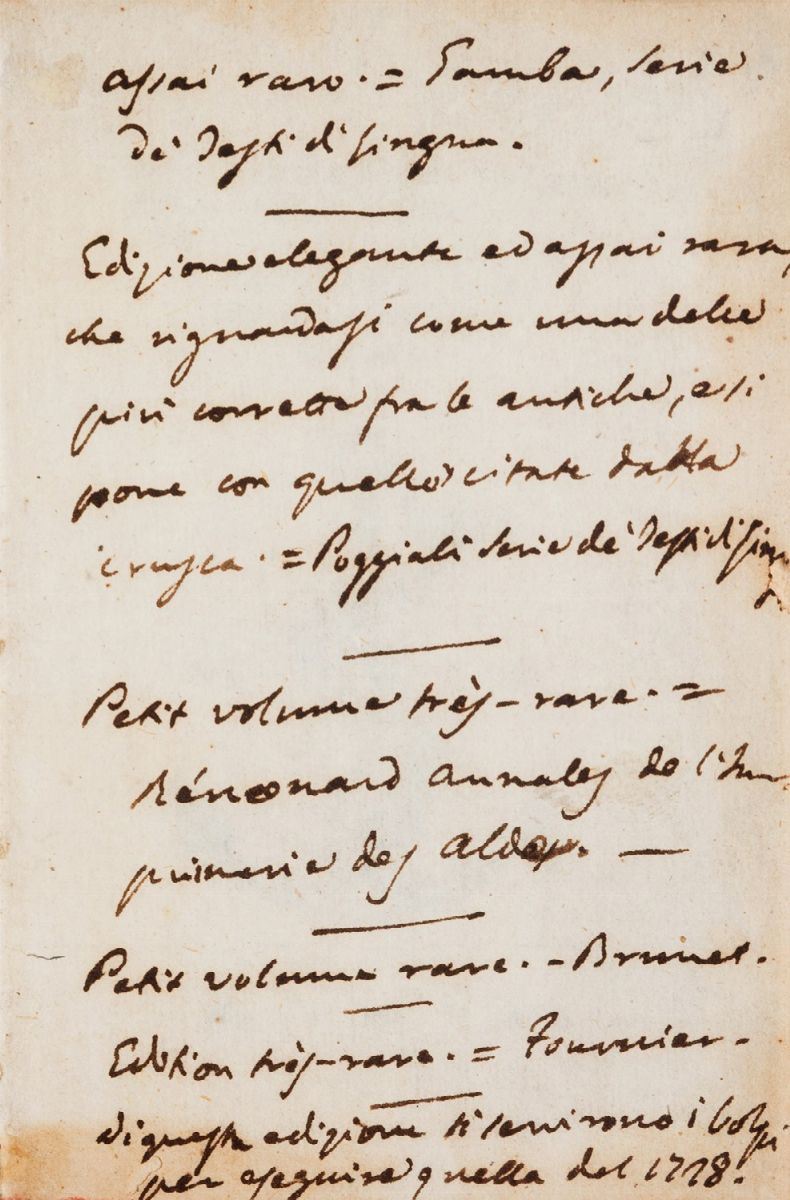 assai raro. = Gamba, serie
de' Testi di lingua.
Edizione elegante ed assai rara,
che riguardasi come una delle
più corrette fra le antiche, e si
pone con quelle citate dalla
crusca. = Poggiali serie de' Testi di lin
Petit volume très-rare. =
Rénouard annales de l'Im
primerie des Aldes. —
Petit volume rare. - Brunet.
Edition très-rare. = Fournier -
di questa edizione si servirono i Volpi
per eseguire quella del 1718.